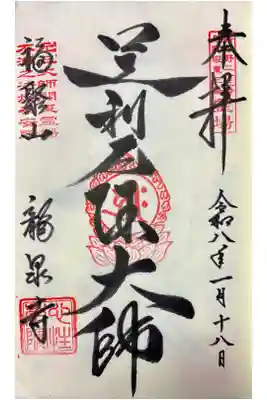 奉拝
令和八年一月十八日
足利厄除大師
福聚山 龍泉寺